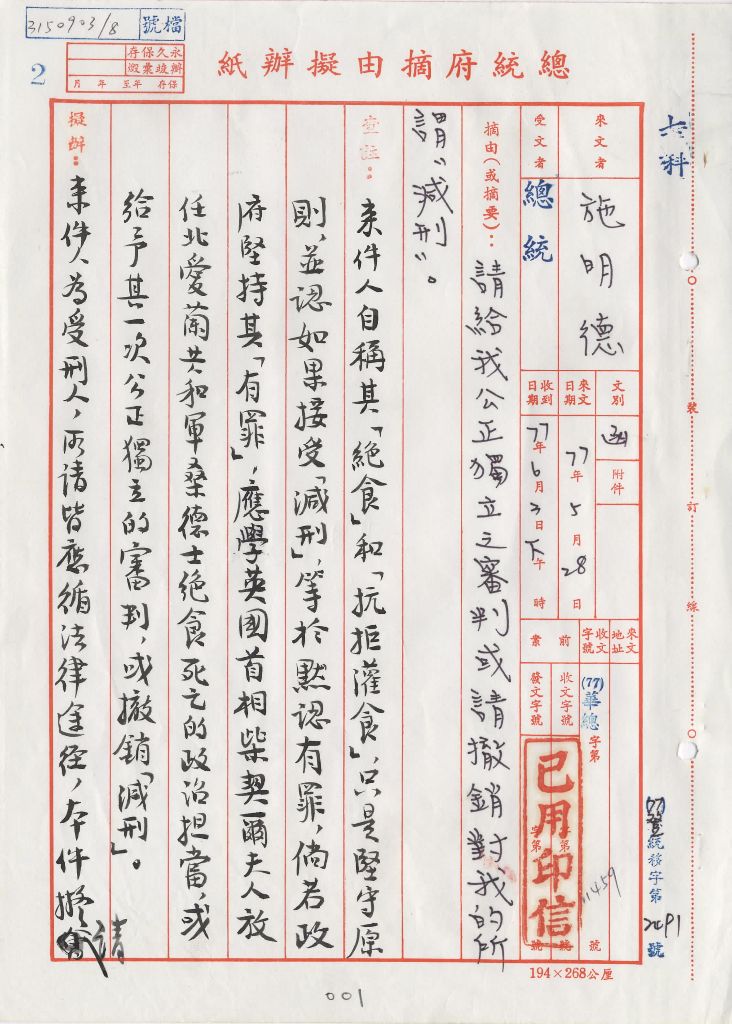 檔號
3150903/8
永久保存
辦竣彙繳
保存 年至 年 月
2
總統府摘由擬辦紙
七科
來文者
施明德
受文者
總統
文別
函
附件
來文日期
77年5月28日
收到日期
77年6月3日下午 時
來文地址
收文字號
前業
收文字號
(77)華總 字第
11459
號
發文字號
字第 號
已用印信
摘由(或摘要):請給我公正獨立之審判或請撤銷對我的所
謂“減刑”。
查註:
來件人自稱其「絕食」和「抗拒灌食」,只是堅守原
則,並認如果接受「減刑」,等於默認有罪,倘若政
府堅持其「有罪」,應學英國首相柴契爾夫人放
任北愛蘭共和軍桑德士絕食死亡的政治担當,或
給予其一次公正獨立的審判,或撤銷「減刑」。
擬辦:
來件人為受刑人,所請皆應循法律途徑,本件擬
請
裝
訂
線
(77)統移字第2091號
194×268公厘
001